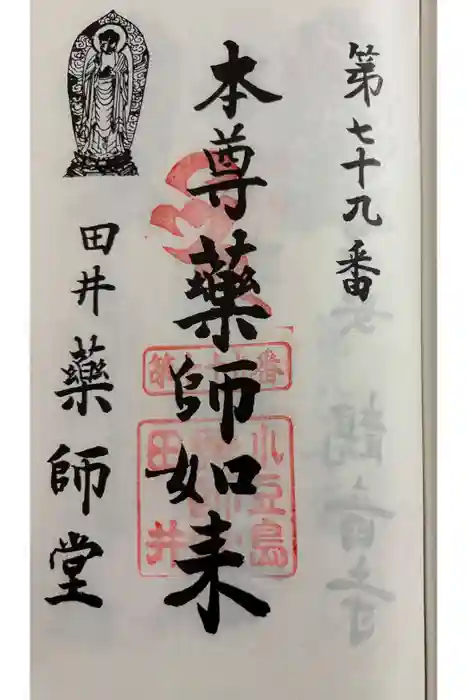 第七十九番
本尊薬師如来
田井薬師堂
第七十九番
小豆島
田井